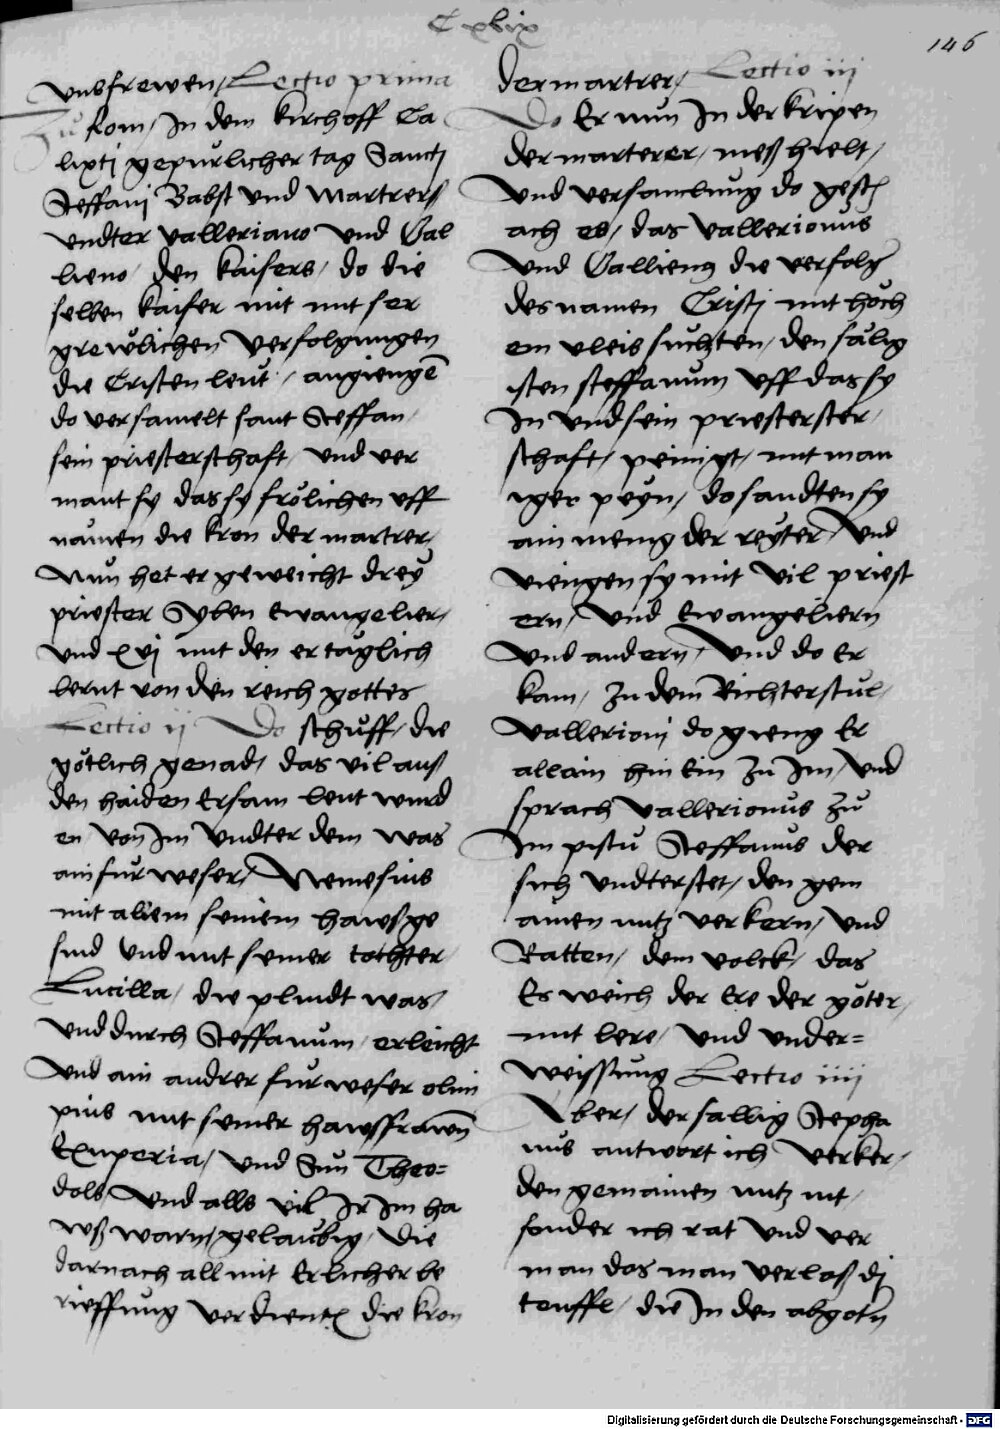 Cxlvix
146
unsfrewen / Lectio prima
Zu Rom / In dem kirchoff Ca
lixtj gepurlicher tag Sanctj
Steffanj Babst und Martrerß
undter valleriano und Gal
lieno / den kaisers / do die
selben kaiser mit mit ser
grewlichen verfolgungen
die Cristen leut / angiengē
do versamelt sant Steffan
sein priesterschaft / und ver
mant sy das sy frölichen uff
namen die kron der martrer /
Nun het er geweicht drey
priester Syben Ewangelier /
und xvj mit den er täglich
lernt von den reich gottes
Lectio ij Do schuff / die
götlich genad / das vil auß
den haiden Ersam leut wurd
en von Im undter dem was
ain furweser / Nemesius
mit allem seinem hawßge
sind und mit seiner tochter /
Lucilla / die plindt was /
und durch Steffanum / erleicht
und ain andrer furweser olim
pius mit seiner hawsfrawn
Exuperia / und Sun Theo=
dols / und alls vil Ir Im ha
wß warn / gelaubig / die
darnach all mit Erlicher be
rieffung verdientē die kron
der martrer / Lectio iij
Do Er nun In der kripen
der marterer / meß hielt /
und versamlung do gesch
ach es / das vallerionus
und Gallieng die verfolg
des namen Cristj mit hoch
em vleis suchten / den sälig
isten steffanum uff das sy
In und sein priesterster /
schaft / peinigt / mit man
iger peyn / do sandten sy
ain menig der reyter / und
viengen sy mit vil priest
ern / und Ewangeliern
und andern / und do Er
kam / zu dem Richterstul /
vallerionj do gieng Er
allain hin Ein zu Im / und
sprach vallerionus zu
Im pistu Steffanus der
sich undterstet / den gem
ainen nutz verkern / und
Ratten / dem volck / das
Es weich der Ere der göter /
mit lere / und under=
weissung Lectio iiij
Aber / der sällig Stepha
nus antwort ich verker /
den gemainen nutz nit /
sonder ich rat und ver
man das man verlaß dj
teuffl / die In den abgotn
Digitalisierung gefördert durch die Deutsche Forschungsgemeinschaft - DFG